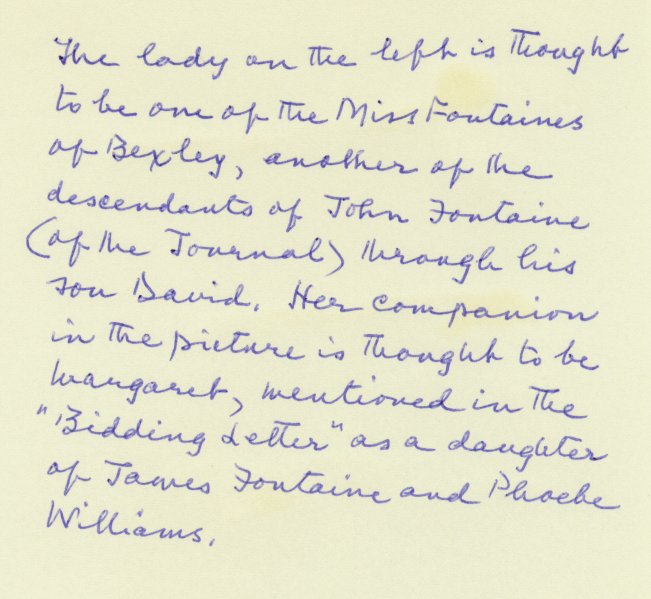 The lady on the left is thought
to be one of the Miss Fontaines
of Bexley, another of the
descendants of John Fontaine
(of the Journal) through his
son David. Her companion
in the picture is thought to be
Margaret, mentioned in the
"Bidding Letter" as a daughter
of James Fontaine and Phoebe
Williams.